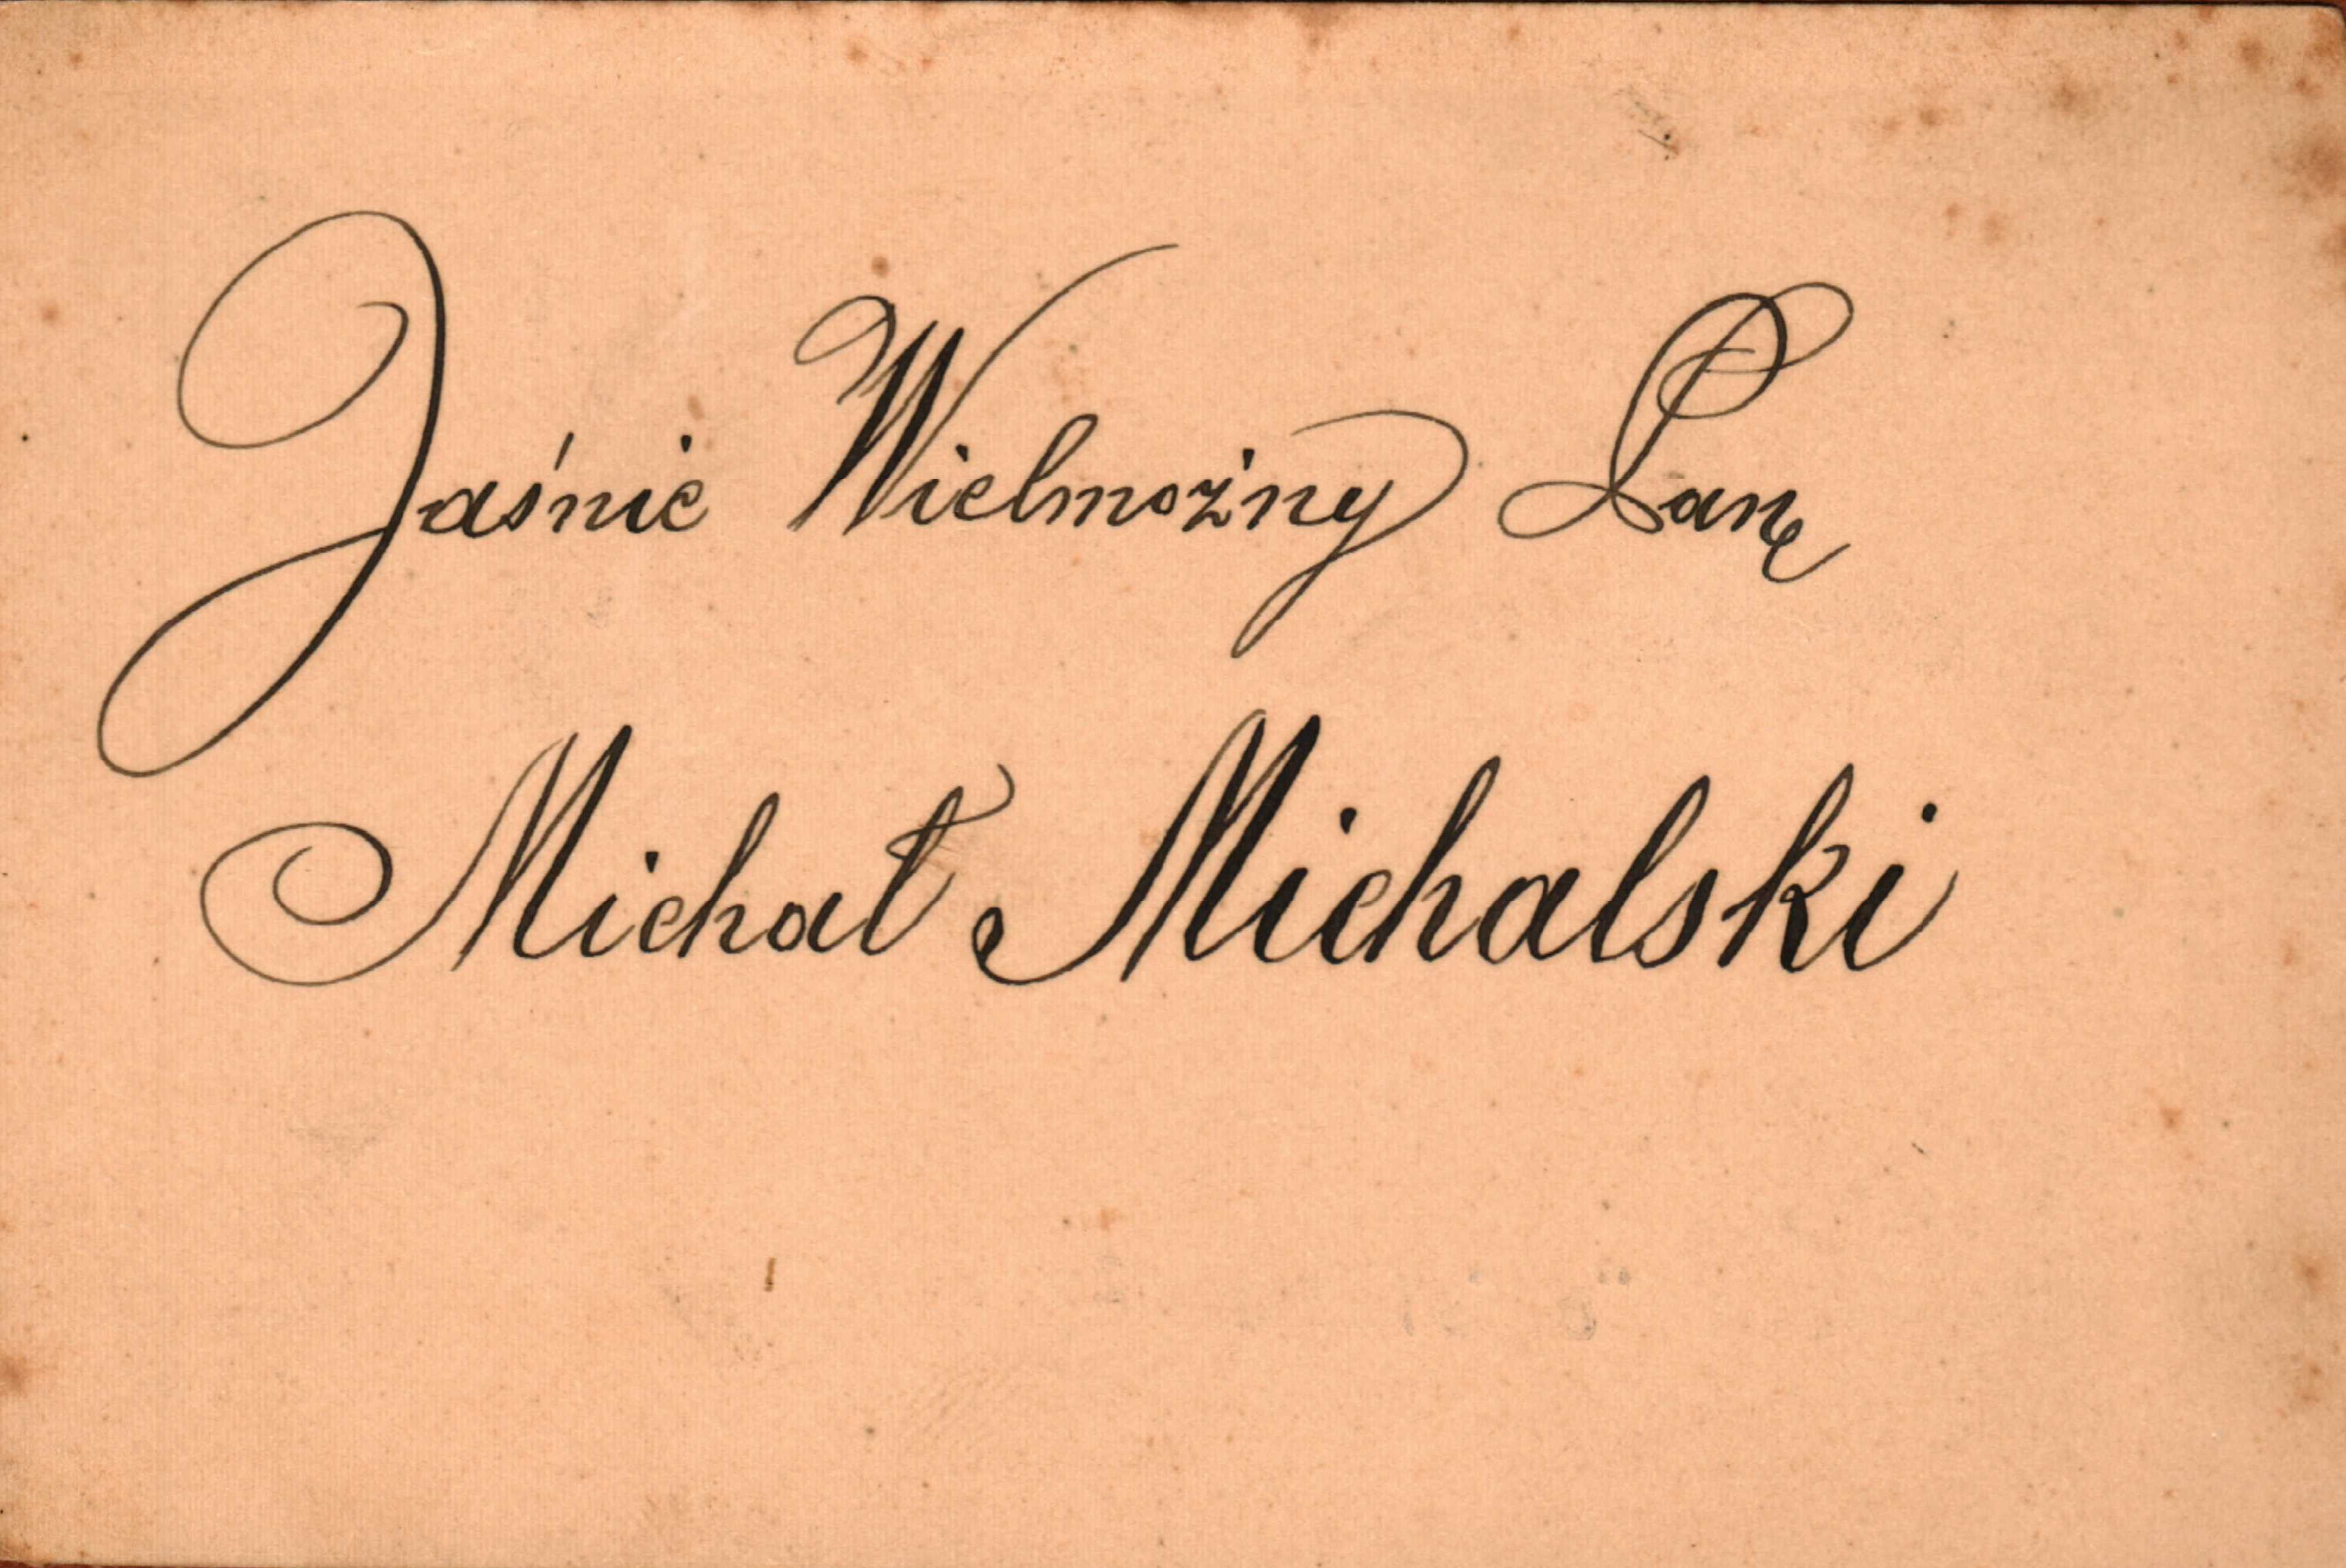 Jaśnie Wielmożny Pan
Michał Michalski